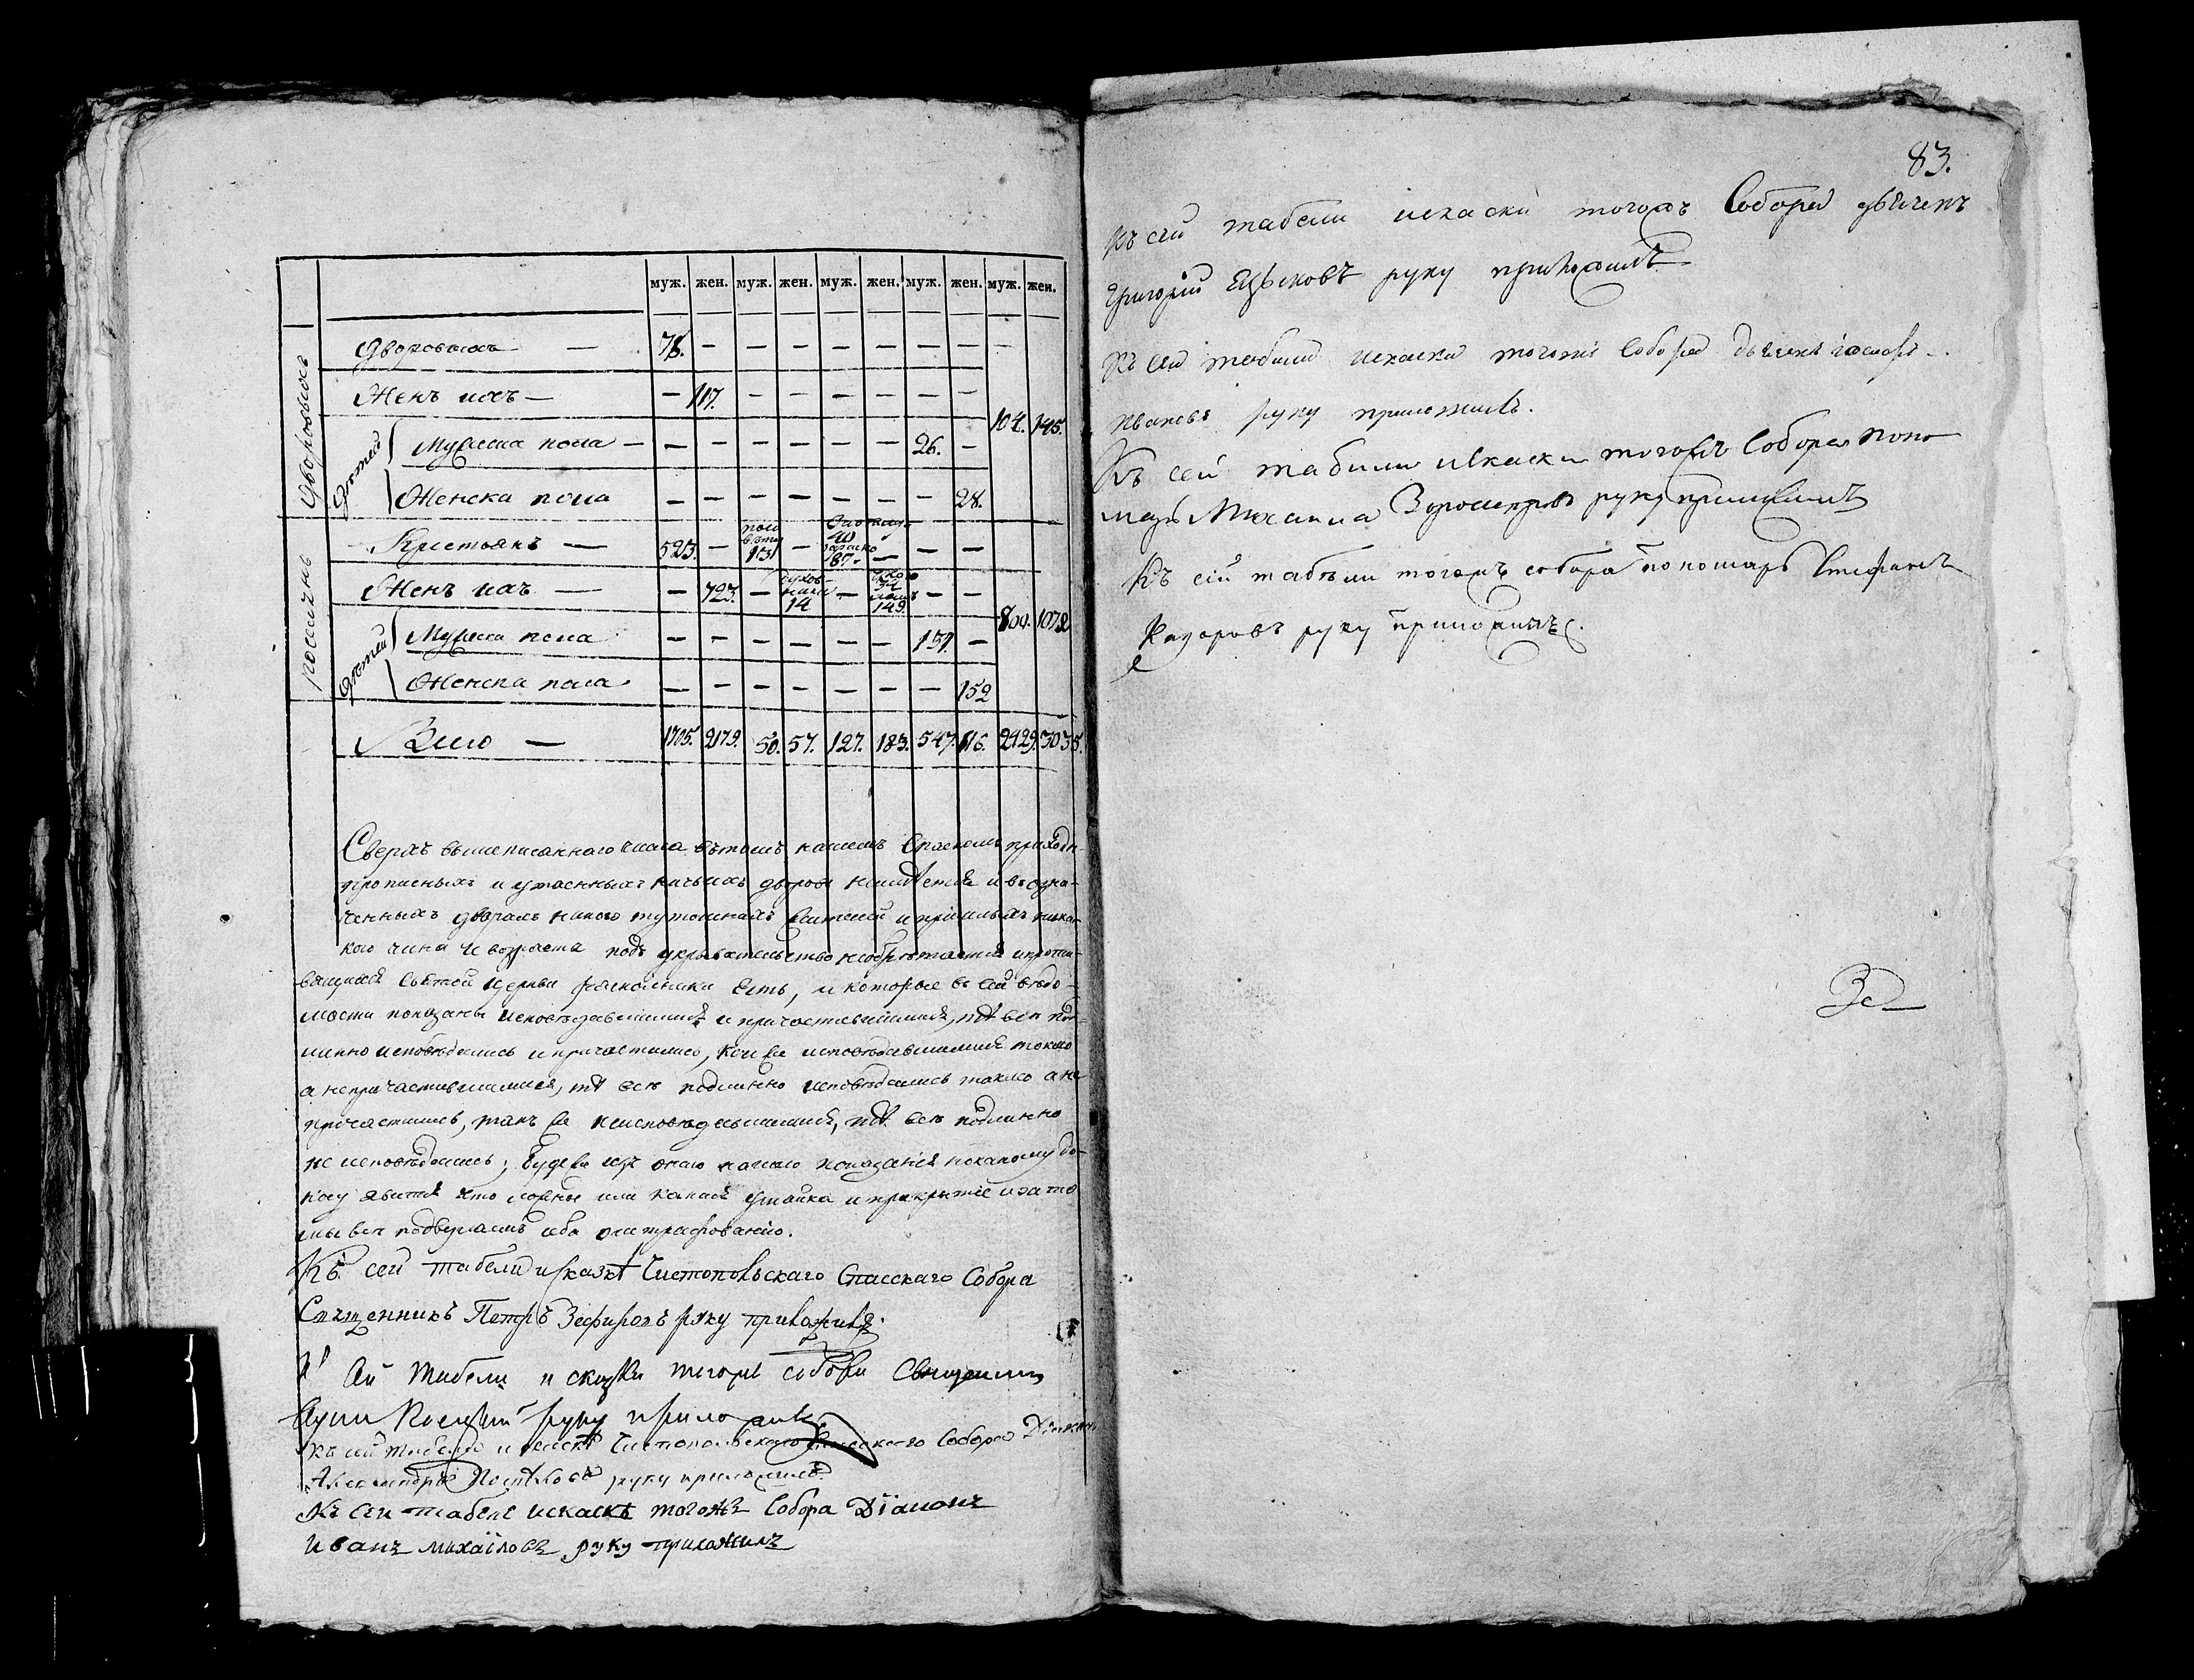 муж. жен. муж. жен. муж. жен. муж. жен. муж. жен.
Дворовыхъ
Дворовыхъ — 78. — — — — — — —
Женъ ихъ — — 117. — — — — — —
104. 145.
Дѣтей
Мужеска пола — — — — — — — 26. —
Женска пола — — — — — — — 28.
Крестьянъ — 523. — 13 — 40 87 — — —
Женъ ихъ — — 723. — 14 — 34 149. — —
804. 1072
Дѣтей
Мужеска пола — — — — — — 131. —
Женска пола — — — — — — — 152
Всего — 1705. 2179. 50. 57. 127. 183. 547. 616. 2429. 3035.
Сверхъ вышеписаннаго числа въ томъ нашемъ Спаскомъ приходѣ
прописныхъ и утаенныхъ ничьихъ дворовъ неимѣется и въ озна-
ченныхъ дворахъ никого тутошнихъ жителей и пришлыхъ никако-
кого чина и возраста подъ укрывательство необрѣтается и проти-
вящияся святой церкви раскольники есть, и которые въ сей вѣдо-
мости показаны исповѣдавшимися и причастившимися, тѣ всѣ под-
линно исповѣдались и причастились, кои же исповѣдавшимися токмо
а непричастившимися, тѣ всѣ подлинно исповѣдались токмо а не
причастились, такъ же неисповѣдавшимися, тѣ всѣ подлинно
не исповѣдались; буде же изъ онаго нашего показанія по какому до-
носу явится что ложно или какая утайка и прикрытіе и за то
мы всѣ подвергаемъ себя оштрафованію.
Къ сей табели и сказкѣ Чистопольскаго Спасскаго Собора
Священникъ Петръ Зефировъ руку приложилъ.
Къ сей табели и сказки тогожъ собора Священникъ
руку приложилъ
Къ сей табели и сказкѣ Чистопольскаго Спасскаго Собора Діаконъ
Александръ руку приложилъ
Къ сеи табелѣ искаскѣ тогожъ Собора Діаконъ
Иванъ Михаиловъ руку приложилъ
83.
Къ сей табели искаски тогожъ Собора дьячекъ
Григорій руку приложилъ
Къ сей табели искаски тогожъ Собора дьячекъ
Ивановъ руку приложилъ.
Къ сей табели искаски тогожъ Собора поно
марь Михаила руку приложилъ
Къ сей табѣли тогожъ собора пономарь Стефанъ
руку приложилъ.